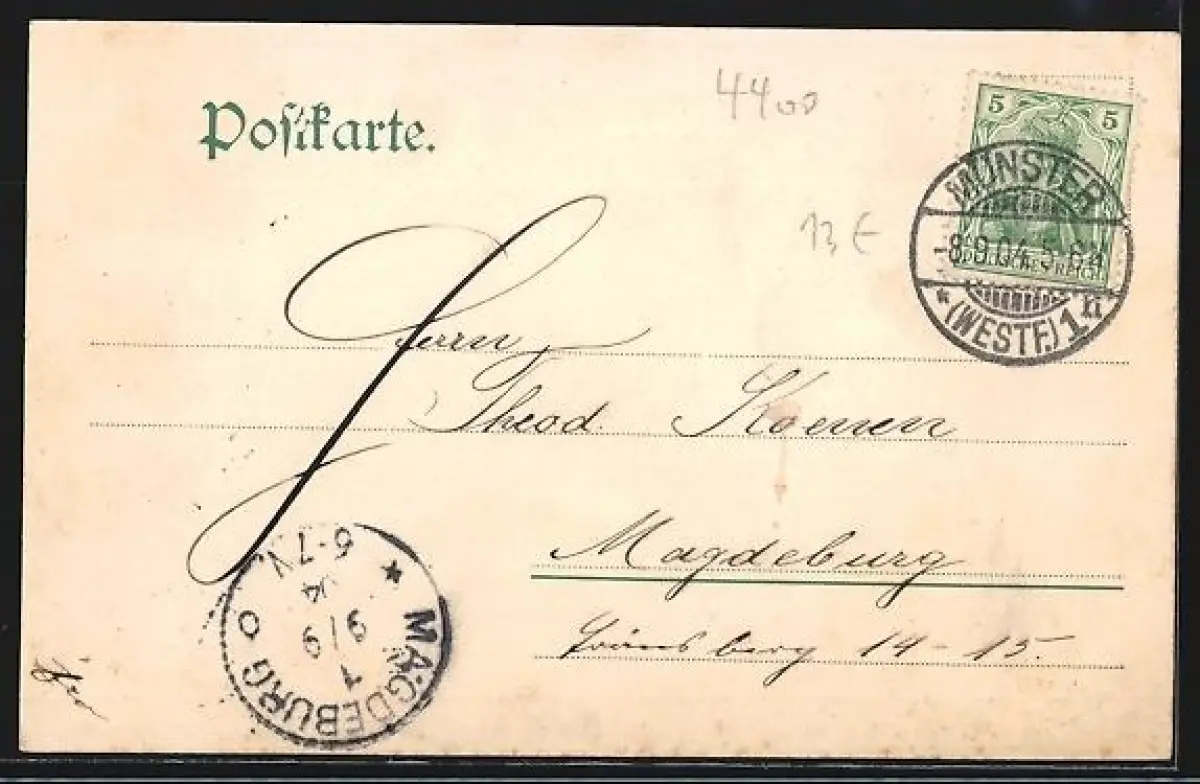 Postkarte.
4400
13 €
5 5
DEUTSCHES REICH
MÜNSTER
-8.9.04.5-6N
* (WESTF.) 1n
Herrn
Theod. Koenen
Magdeburg
14-15.
MAGDEBURG
* 6-7N.
04
9/9
1